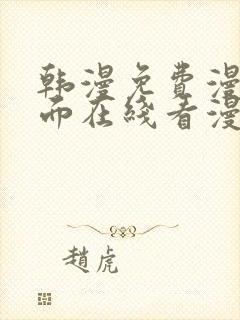 韩漫免费漫
而在线看漫
趙虎